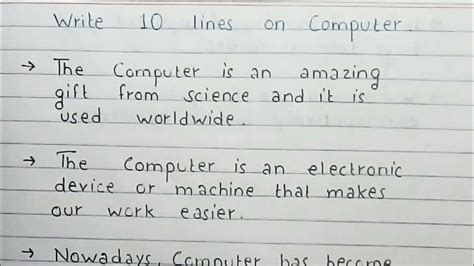 Write 10 lines on Computer.
→ The Computer is an amazing
gift from science and it is
used worldwide.
→ The Computer is an electronic
device or machine that makes
our work easier.
→ Nowadays, Computer has become